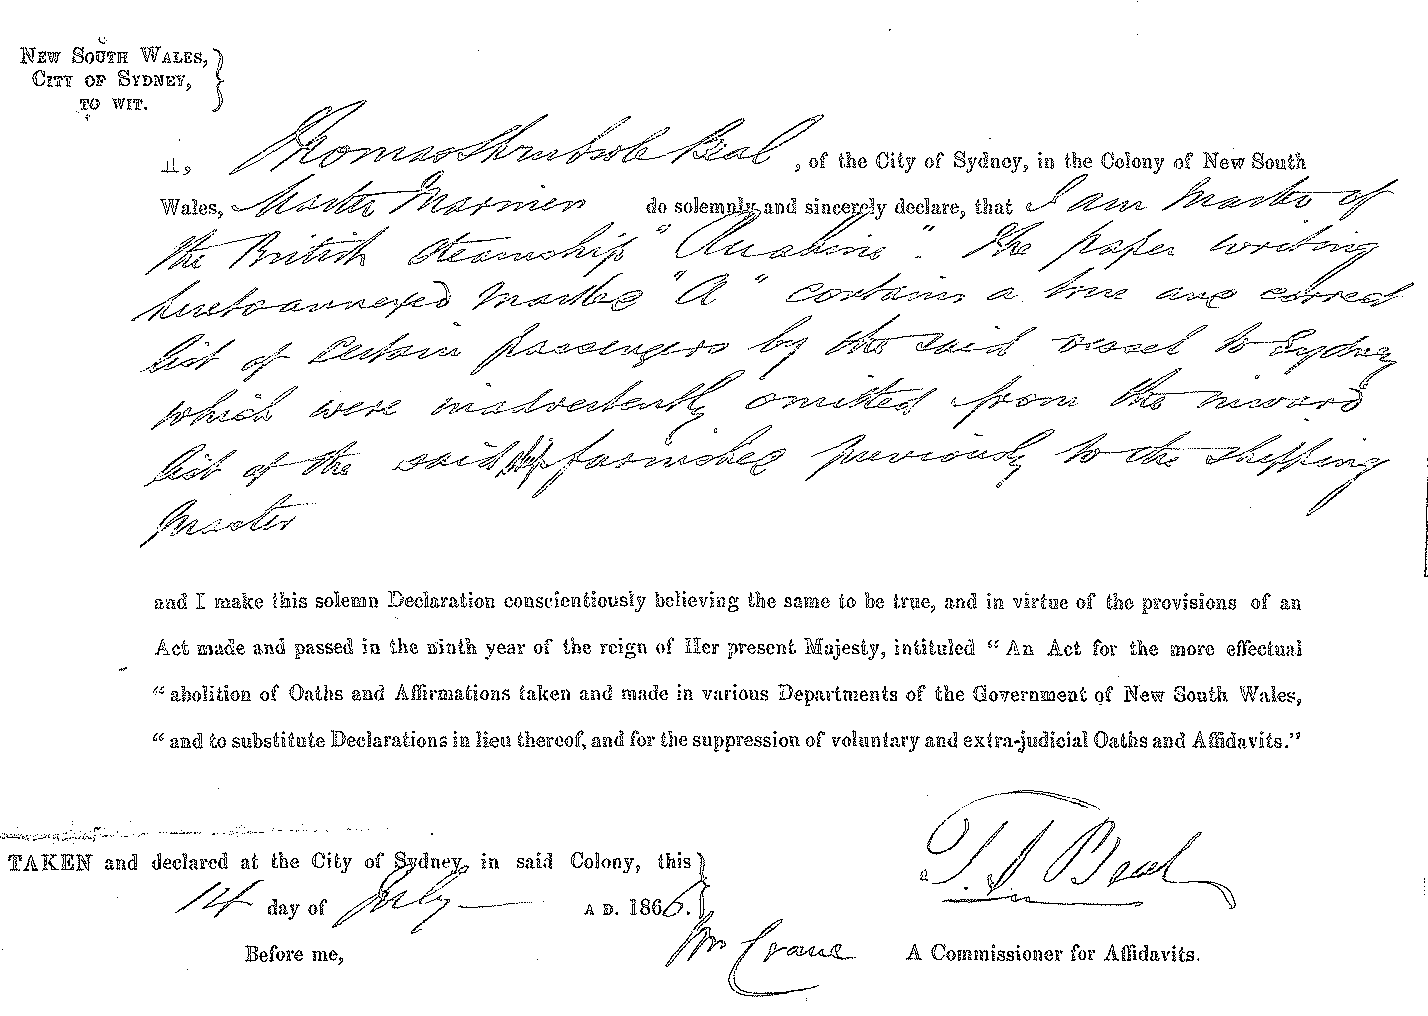 NEW SOUTH WALES,
CITY OF SYDNEY,
TO WIT.
I, Thomas Shrubsole Beal, of the City of Sydney, in the Colony of New South
Wales, Master Mariner do solemnly and sincerely declare, that I am Master of
the British Steamship " ". The paper writing
hereto annexed marked "A" contains a true and correct
list of certain passengers by the said vessel to Sydney
which were inadvertently omitted from the inward
list of the said ship furnished previously to the Shipping
Master
and I make this solemn Declaration conscientiously believing the same to be true, and in virtue of the provisions of an
Act made and passed in the ninth year of the reign of Her present Majesty, intituled "An Act for the more effectual
"abolition of Oaths and Affirmations taken and made in various Departments of the Government of New South Wales,
"and to substitute Declarations in lieu thereof, and for the suppression of voluntary and extra-judicial Oaths and Affidavits."
TAKEN and declared at the City of Sydney, in said Colony, this
14 day of July A D. 1866.
T. S. Beal
Before me, Wm Crane A Commissioner for Affidavits.